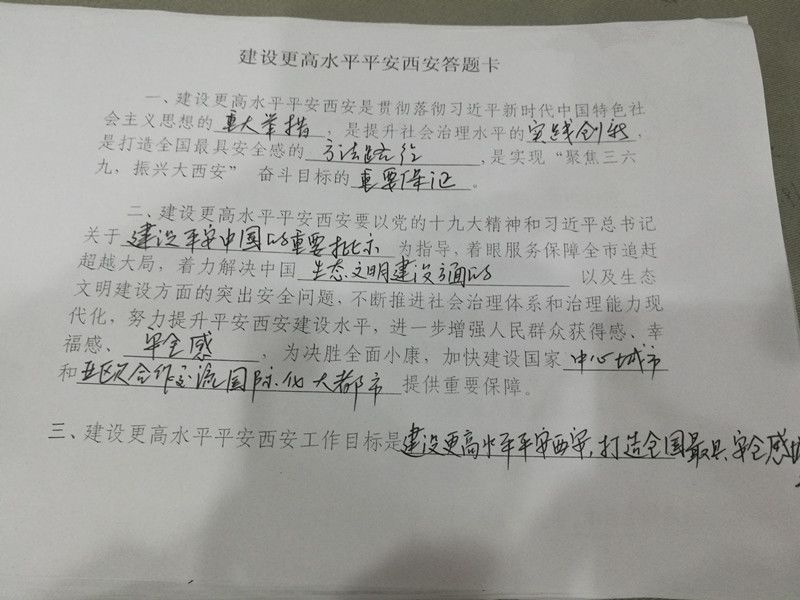 建设更高水平平安西安答题卡
一、建设更高水平平安西安是贯彻落彻习近平新时代中国特色社
会主义思想的 重大举措 ，是提升社会治理水平的 实践创新，
是打造全国最具安全感的 方法路径 ，是实现“聚焦三六
九，振兴大西安” 奋斗目标的 重要保证 。
二、建设更高水平平安西安要以党的十九大精神和习近平总书记
关于 建设平安中国的重要批示 为指导，着眼服务保障全市追赶
超越大局，着力解决中国 生态文明建设方面的 以及生态
文明建设方面的突出安全问题，不断推进社会治理体系和治理能力现
代化，努力提升平安西安建设水平，进一步增强人民群众获得感、幸
福感、 安全感 ，为决胜全面小康，加快建设国家 中心城市
和 亚欧合作交流国际化大都市 提供重要保障。
三、建设更高水平平安西安工作目标是建设更高水平平安西安，打造全国最具安全感城